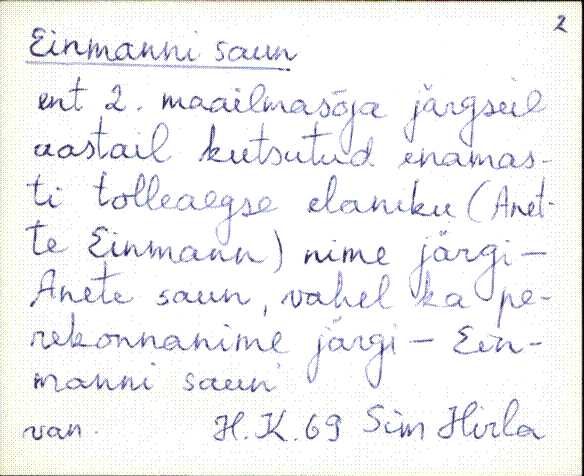 2
Einmanni saun
ent 2. maailmasõja järgseil
aastail kutsutud enamas-
ti tolleaegse elaniku (Anet-
te Einmann) nime järgi —
Anete saun, vahel ka pe-
rekonnanime järgi — Ein-
manni saun
van. H.K. 69 Siim Hirla